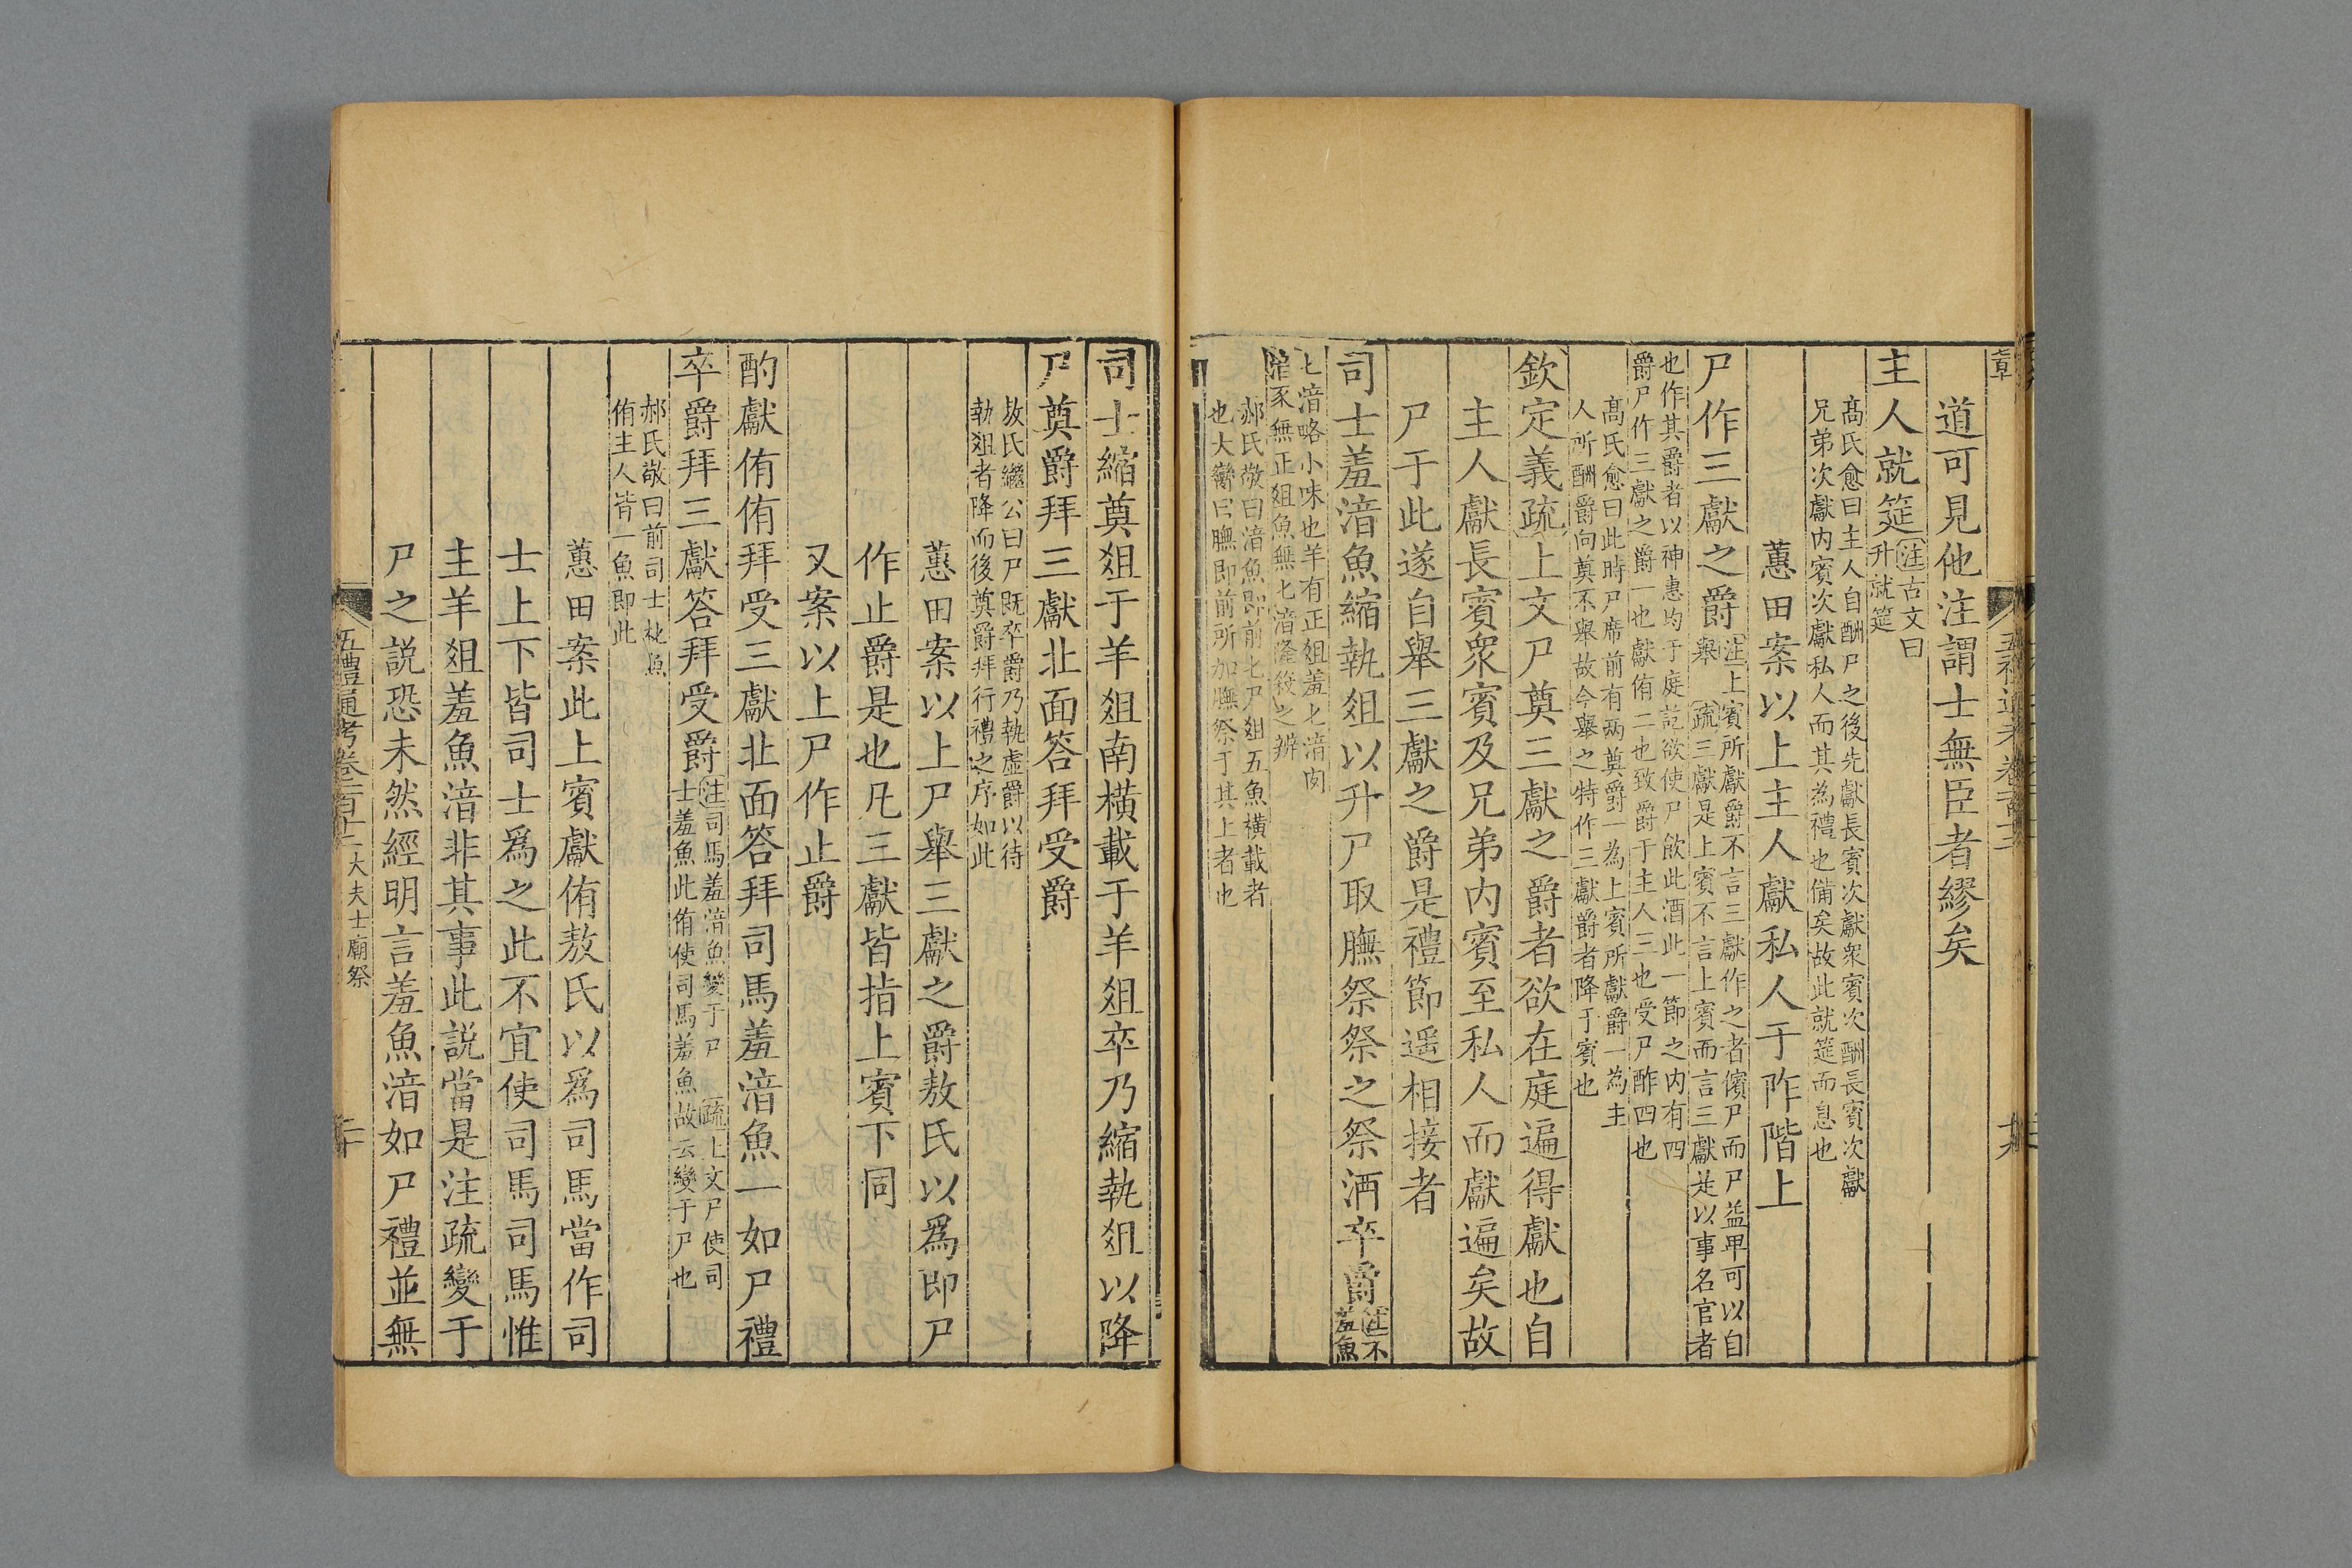 章
道可見他注謂士無臣者繆矣
主人就筵注古文曰
升就筵
高氏愈曰主人自酬尸之後先獻長賓次獻衆賓次酬長賓次獻
兄弟次獻内賓次獻私人而其為禮也備矣故此就筵而息也
蕙田案以上主人獻私人于阼階上
尸作三獻之爵注上賓所獻爵不言三獻作之者儐尸而尸益卑可以自
舉 疏三獻是上賓不言上賓而言三獻是以事名官者
也作其爵者以神惠均于庭訖欲使尸飲此酒此一節之内有四
爵尸作三獻之爵一也獻侑二也致爵于主人三也受尸酢四也
高氏愈曰此時尸席前有两奠爵一為上賓所獻爵一為主
人所酬爵向奠不舉故今舉之特作三獻爵者降于賓也
欽定義疏上文尸奠三獻之爵者欲在庭遍得獻也自
主人獻長賓衆賓及兄弟内賓至私人而獻遍矣故
尸于此遂自舉三獻之爵是禮節遥相接者
司士羞湆魚縮執俎以升尸取膴祭祭之祭酒卒爵注不
羞魚
匕湆略小味也羊有正俎羞匕湆肉
湆豕無正俎魚無匕湆隆殺之辨
郝氏敬曰湆魚即前匕尸俎五魚橫載者
也大臠曰膴即前所加膴祭于其上者也
司士縮奠俎于羊俎南橫載于羊俎卒乃縮執俎以降
尸奠爵拜三獻北面答拜受爵
敖氏繼公曰尸既卒爵乃執虛爵以待
執俎者降而後奠爵拜行禮之序如此
蕙田案以上尸舉三獻之爵敖氏以為即尸
作止爵是也凡三獻皆指上賓下同
又案以上尸作止爵
酌獻侑侑拜受三獻北面答拜司馬羞湆魚一如尸禮
卒爵拜三獻答拜受爵注司馬羞湆魚變于尸 疏上文尸使司
士羞魚此侑使司馬羞魚故云變于尸也
郝氏敬曰前司士朼魚
侑主人皆一魚即此
蕙田案此上賓獻侑敖氏以爲司馬當作司
士上下皆司士爲之此不宜使司馬司馬惟
主羊俎羞魚湆非其事此説當是注疏變于
尸之説恐未然經明言羞魚湆如尸禮並無
五禮通考卷一百十二大夫士廟祭 二十